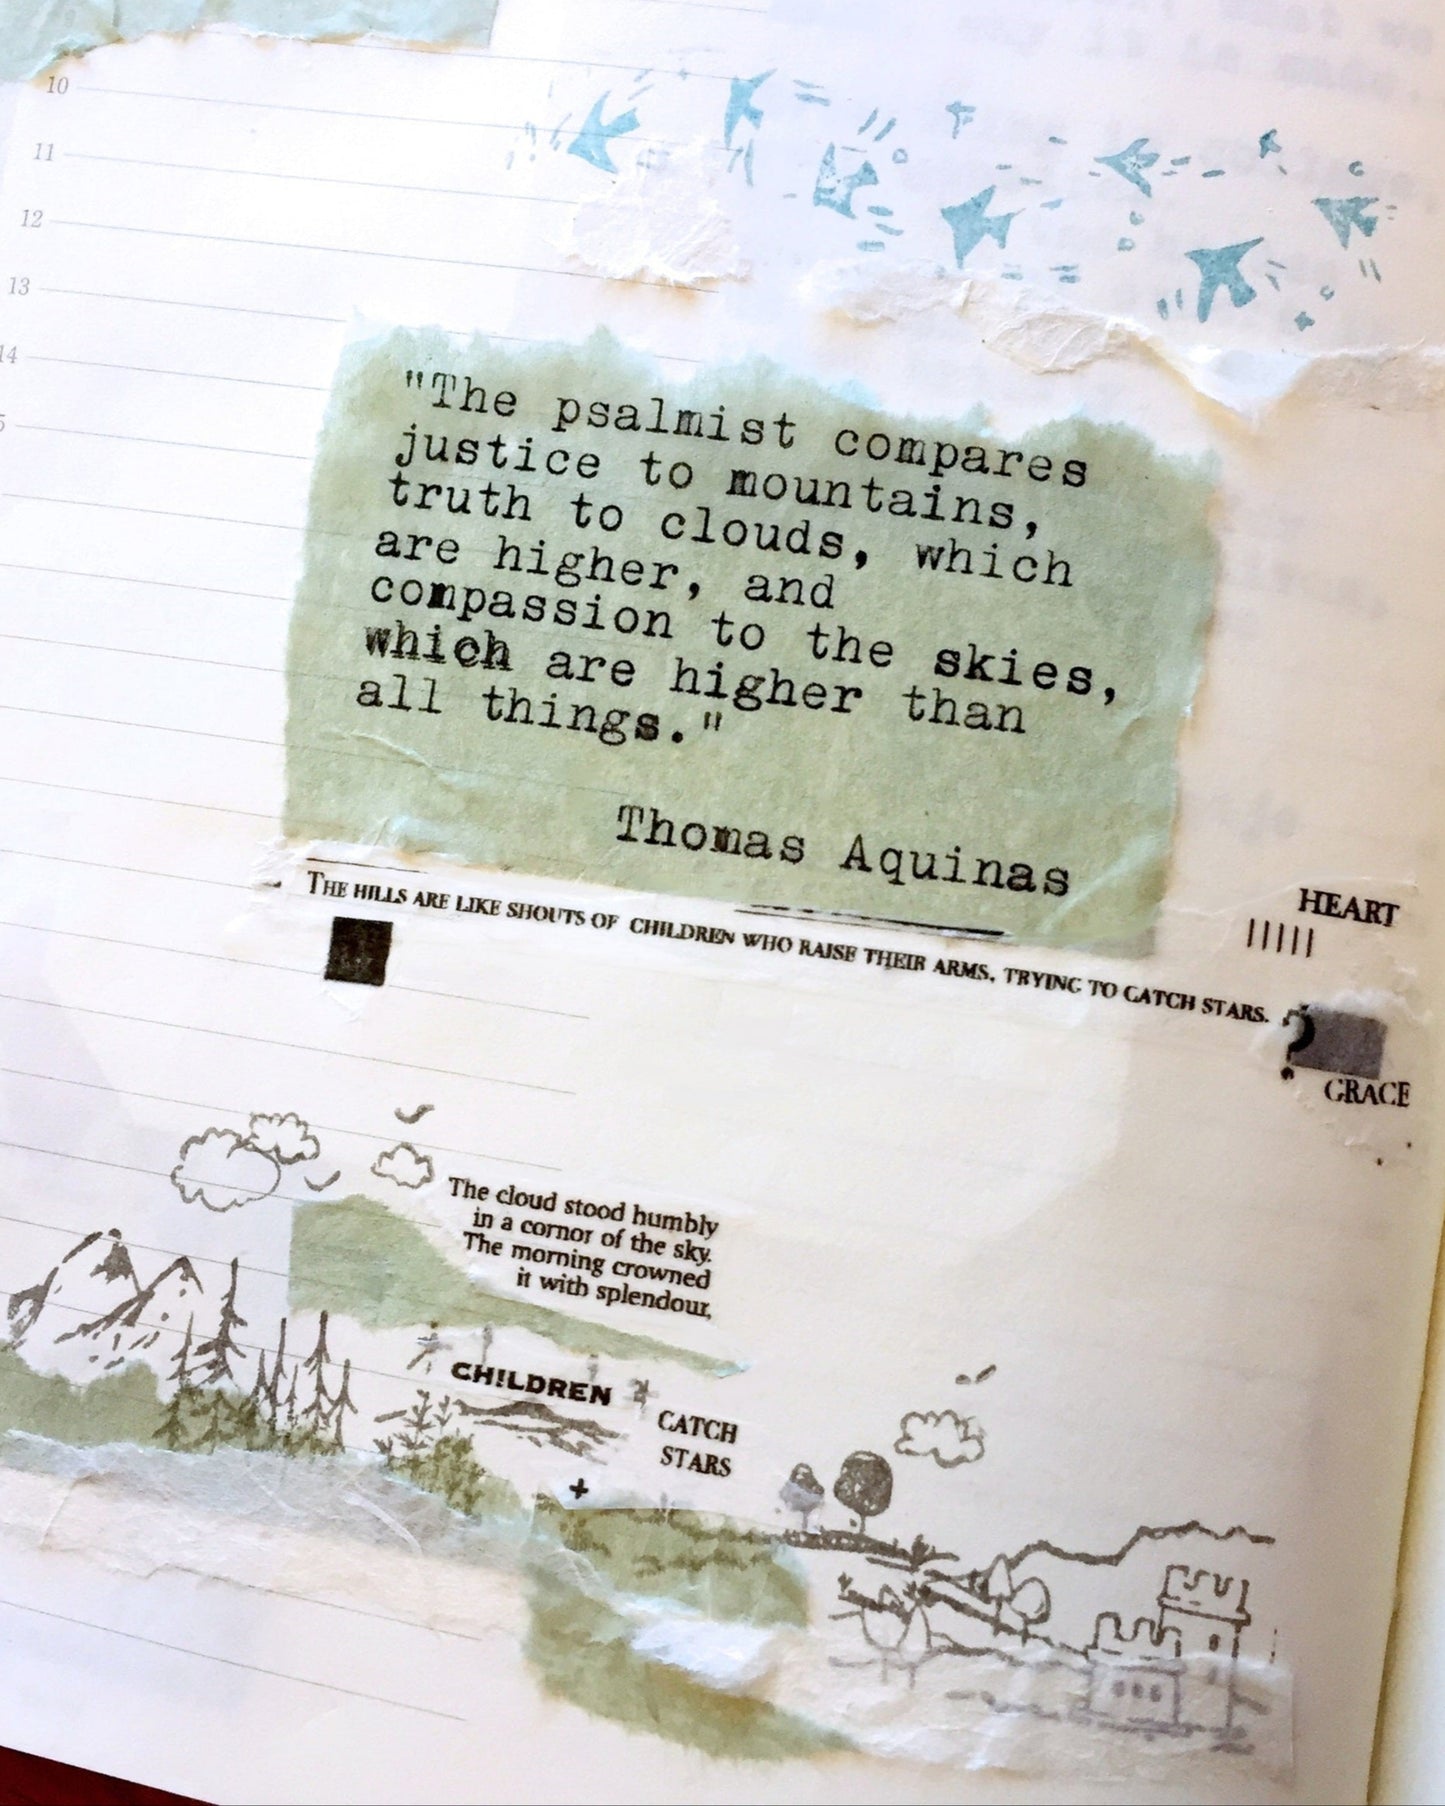 10
11
12
13
14
5
"The psalmist compares
justice to mountains,
truth to clouds, which
are higher, and
compassion to the skies,
which are higher than
all things."
Thomas Aquinas
THE HILLS ARE LIKE SHOUTS OF CHILDREN WHO RAISE THEIR ARMS, TRYING TO CATCH STARS.
HEART
?
GRACE
The cloud stood humbly
in a cornor of the sky.
The morning crowned
it with splendour.
CH!LDREN
CATCH
STARS
+